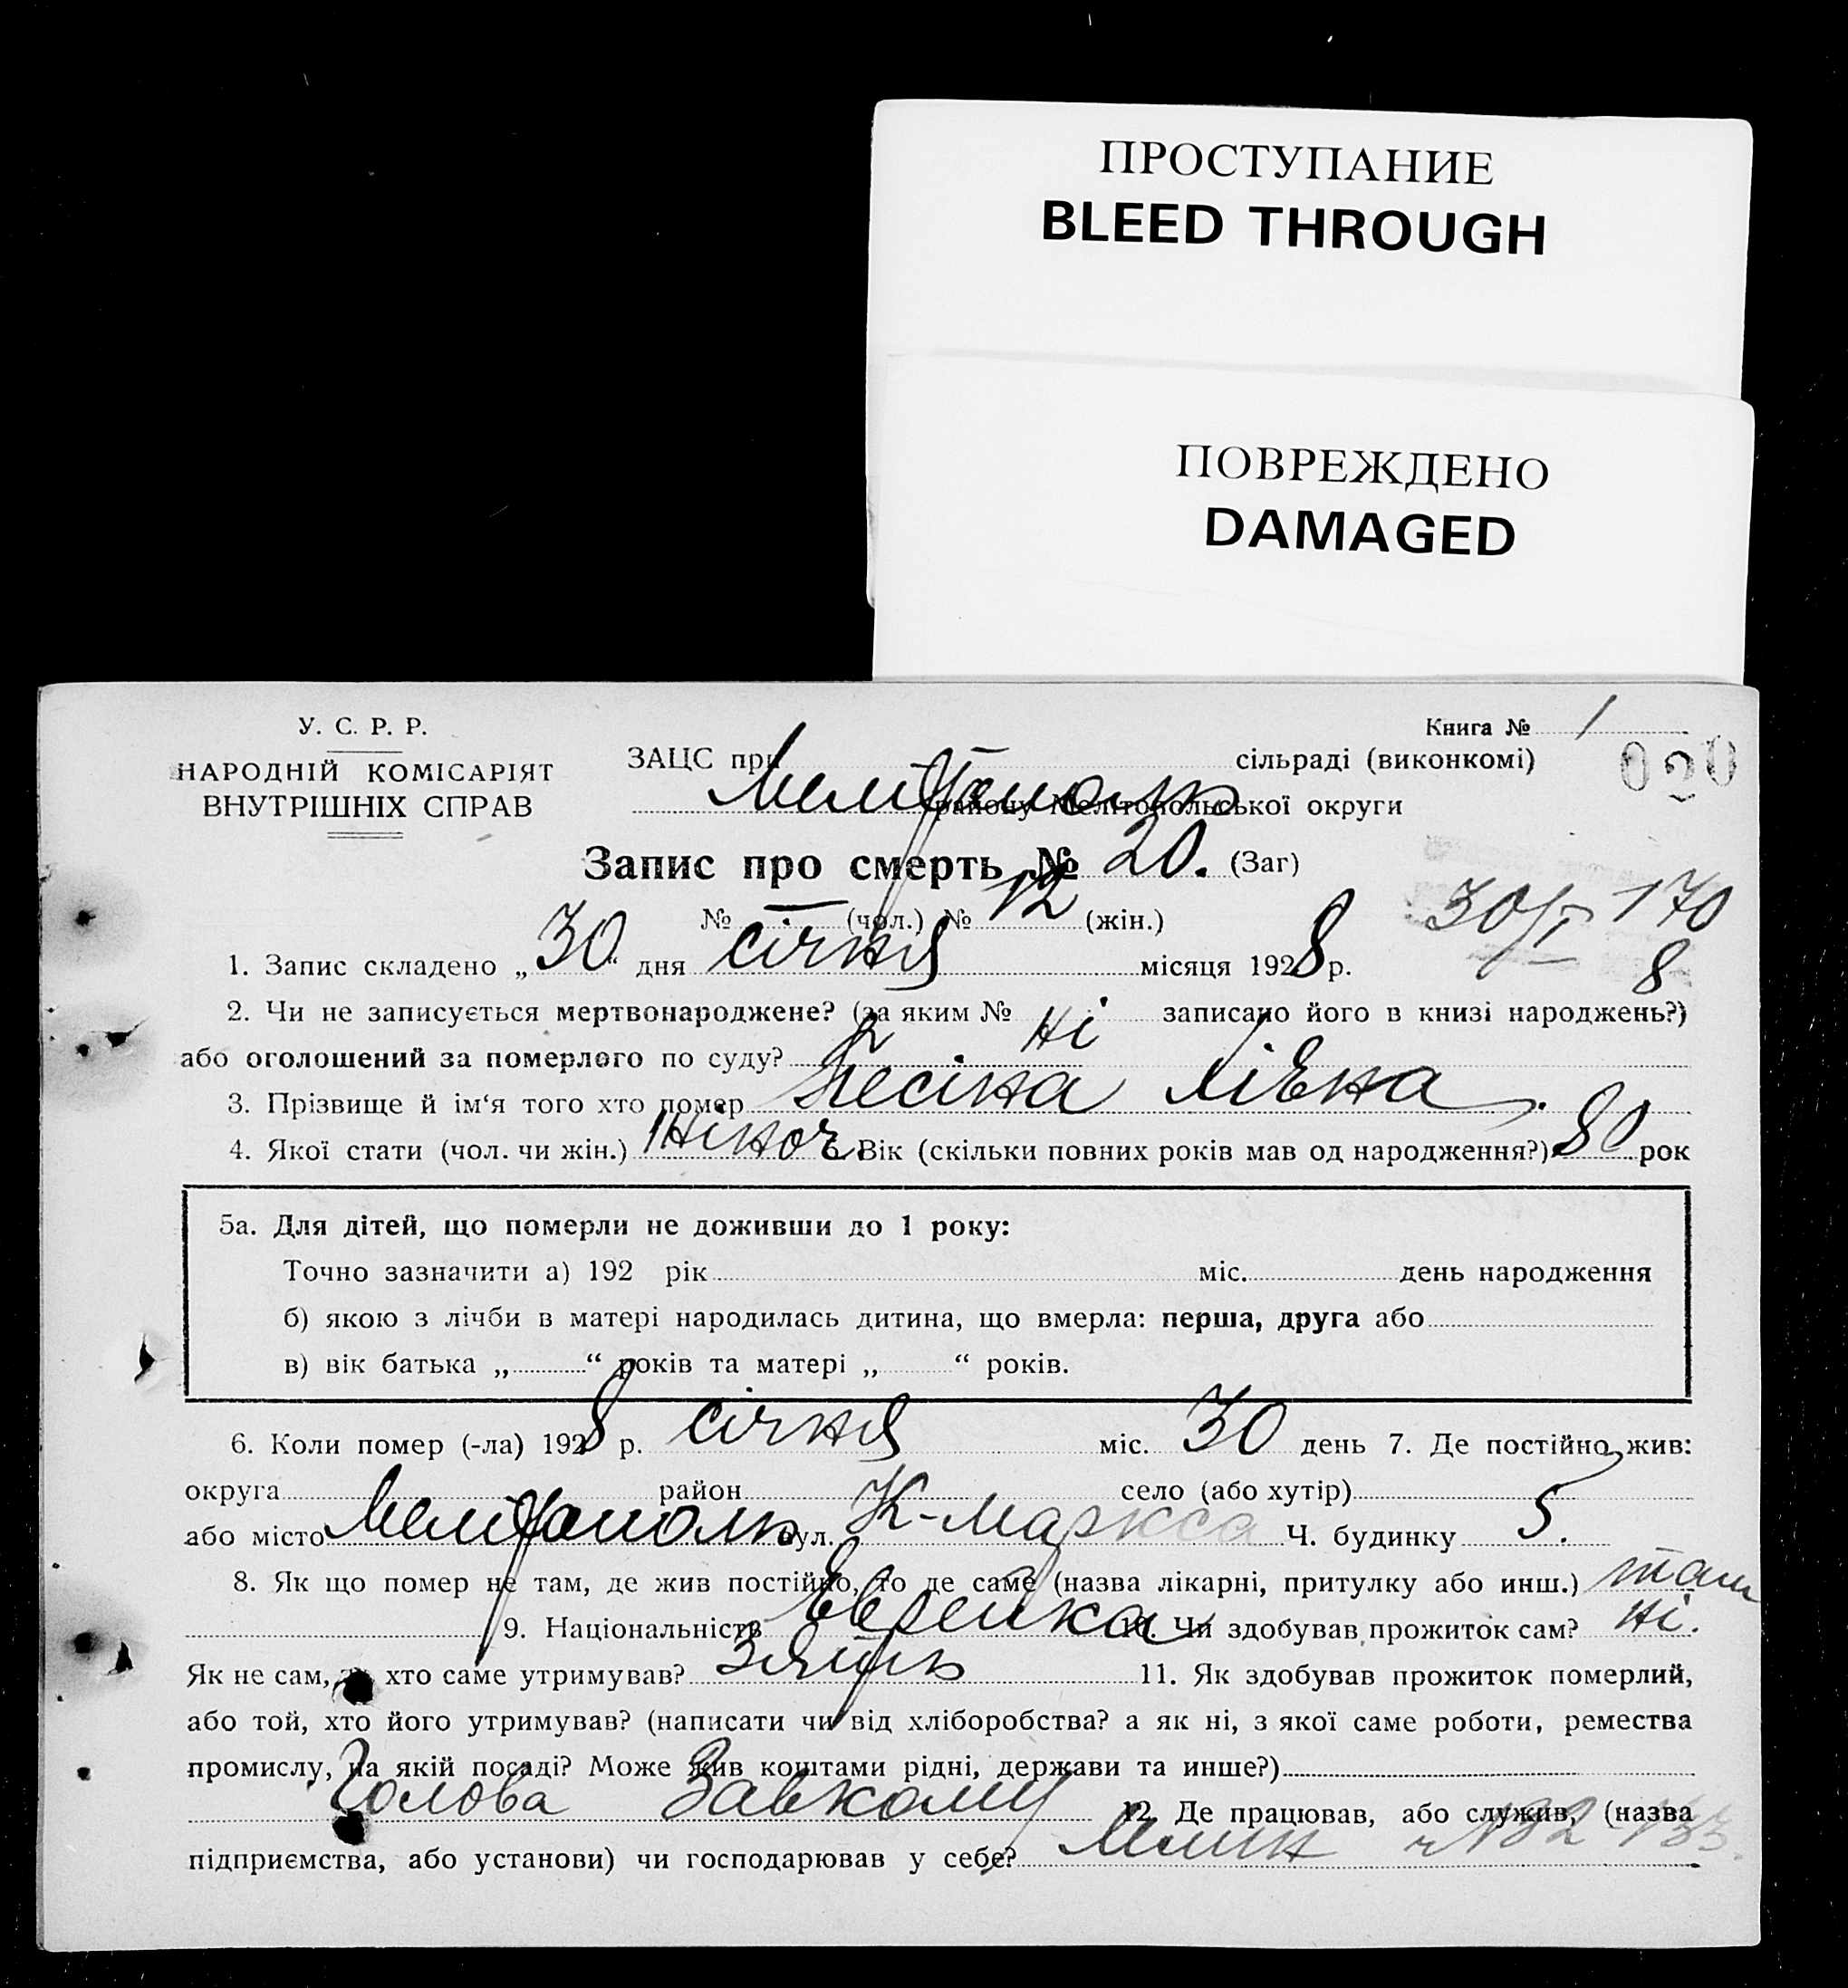 ПРОСТУПАНИЕ
BLEED THROUGH
ПОВРЕЖДЕНО
DAMAGED
У. С. Р. Р.
НАРОДНІЙ КОМІСАРІЯТ
ВНУТРІШНІХ СПРАВ
Книга № 1
020
ЗАЦС при сільраді (виконкомі)
Мелітополь району Мелітопольської округи
Запис про смерть № 20. (Заг)
№ — (чол.) № 12 (жін.)
30/I 170
8
1. Запис складено „30“ дня січня місяця 1928 р.
2. Чи не записується мертвонароджене? (за яким № ні записано його в книзі народжень?)
або оголошений за померлого по суду?
3. Прізвище й ім‘я того хто помер Песіна Лівна.
4. Якої стати (чол. чи жін.) жіноч. Вік (скільки повних років мав од народження?) 80 рок
5а. Для дітей, що померли не доживши до 1 року:
Точно зазначити а) 192 рік міс. день народження
б) якою з лічби в матері народилась дитина, що вмерла: перша, друга або
в) вік батька „ “ років та матері „ “ років.
6. Коли помер (-ла) 1928 р. січня міс. 30 день 7. Де постійно жив:
округа район село (або хутір)
або місто Мелітополь вул. К-Маркса Ч. будинку 5.
8. Як що помер не там, де жив постійно, то де саме (назва лікарні, притулку або инш.) там
9. Національність Еврейка 10. Чи здобував прожиток сам? ні.
Як не сам, то хто саме утримував? Зять 11. Як здобував прожиток померлий,
або той, хто його утримував? (написати чи від хліборобства? а як ні, з якої саме роботи, ремества
промислу, на якій посаді? Може жив коштами рідні, держави та инше?)
Голова Завкому 12. Де працював, або служив, (назва
підприємства, або установи) чи господарював у себе? Млин